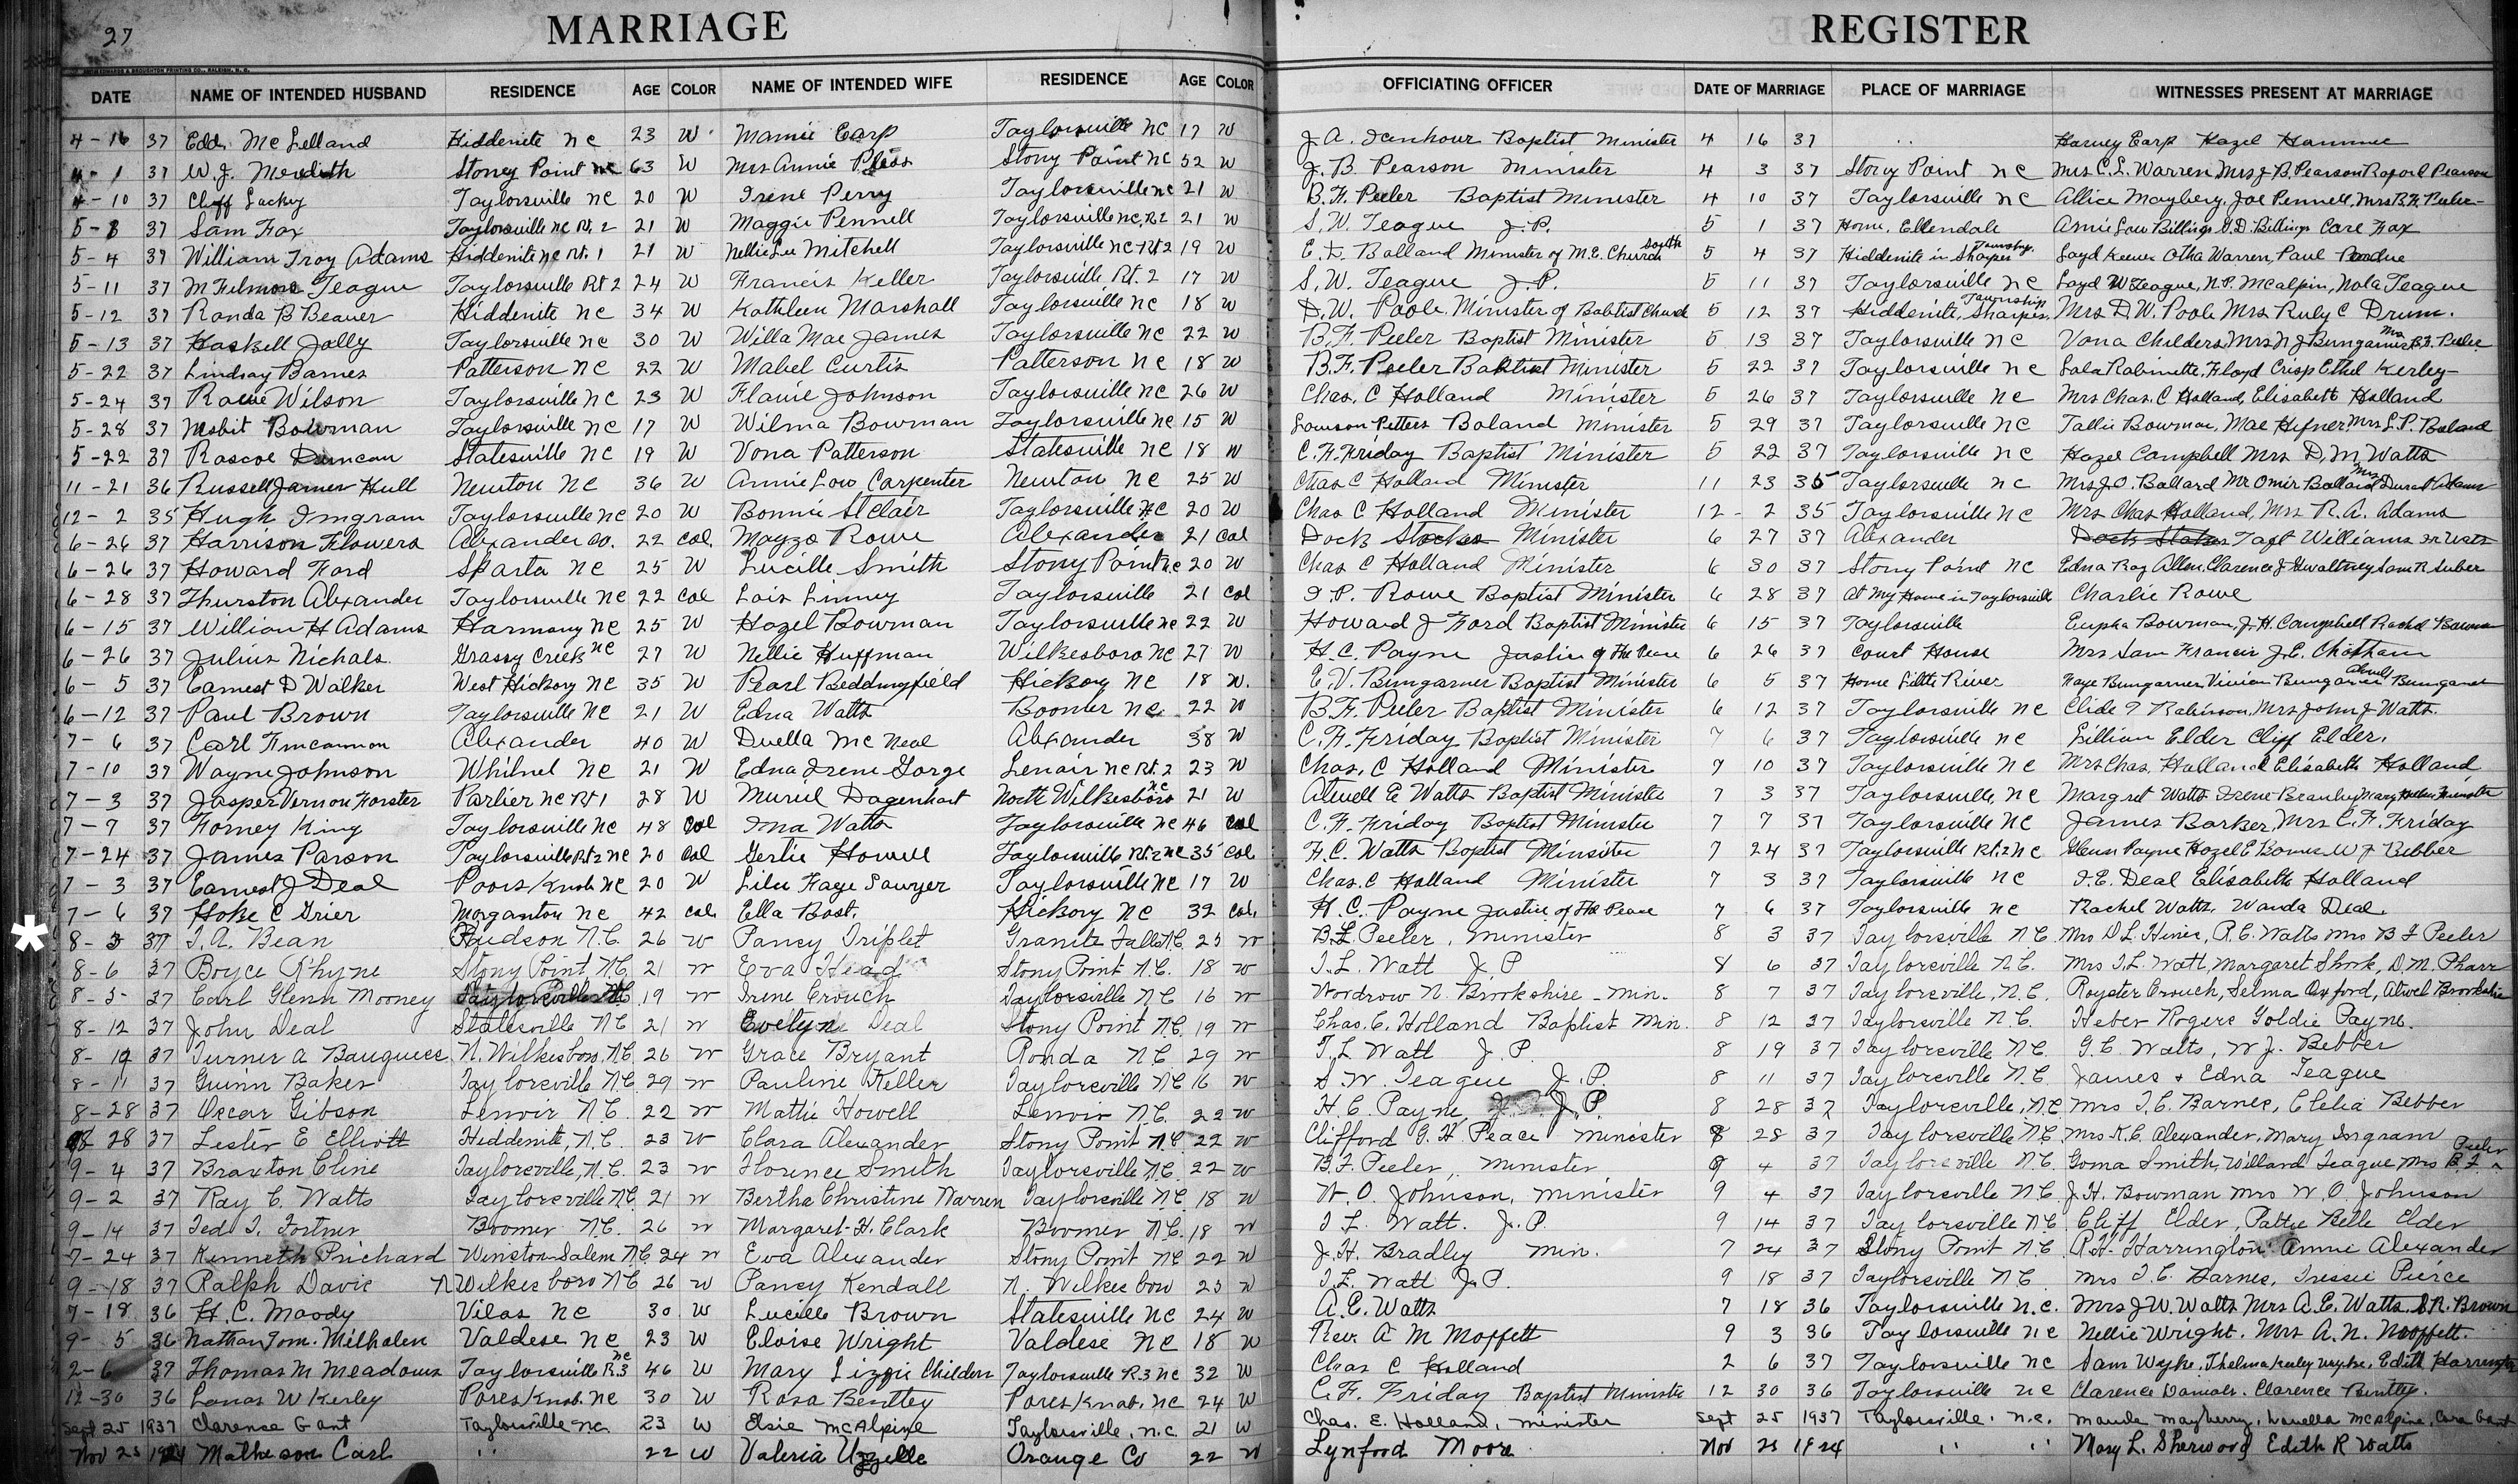 27
MARRIAGE REGISTER
DATE NAME OF INTENDED HUSBAND RESIDENCE AGE COLOR NAME OF INTENDED WIFE RESIDENCE AGE COLOR OFFICIATING OFFICER DATE OF MARRIAGE PLACE OF MARRIAGE WITNESSES PRESENT AT MARRIAGE
4-16 37 Edd McLelland Hiddenite NC 23 W Mamie Earp Taylorsville NC 17 W J A. Isenhour Baptist Minister 4 16 37 Harvey Earp Hazel
4-1 37 W. J. Meredith Stoney Point NC 63 W Mrs Annie Stony Point NC 52 W J. B. Pearson Minister 4 3 37 Stony Point NC Mrs C. L. Warren, Mrs J. B. Pearson Pearson
4-10 37 Cliff Lackey Taylorsville NC 20 W Irene Perry Taylorsville NC 21 W B. F. Peeler Baptist Minister 4 10 37 Taylorsville NC Allice Maybery, Joe Pennell, Mrs B. F. Peeler
5-8 37 Sam Fox Taylorsville NC Rt. 2 21 W Maggie Pennell Taylorsville NC. Rt 2 21 W S. W. Teague J. P. 5 1 37 Home, Ellendale Annie Lou Billings G. D. Billings Carl Fox
5-4 37 William Troy Adams Hiddenite NC Rt. 1 21 W Nellie Lee Mitchell Taylorsville NC Rt 2 19 W E. D. Balland Minister of M. E. Church South 5 4 37 Hiddenite in Sharpes Township Loyd Otha Warren, Paul
5-11 37 M Filmore Teague Taylorsville Rt 2 24 W Francis Keller Taylorsville Rt. 2 17 W S. W. Teague J. P. 5 11 37 Taylorsville NC Loyd W Teague, N. P. McAlpin, Nola Teague
5-12 37 Ronda B Beaver Hiddenite NC 34 W Kathleen Marshall Taylorsville NC 18 W D. W. Poole Minister of Babtist Church 5 12 37 Hiddenite, Sharpes Township Mrs D. W. Poole Mrs Ruby C Drum.
5-13 37 Haskell Jolly Taylorsville NC 30 W Willa Mae James Taylorsville NC 22 W B. F. Peeler Baptist Minister 5 13 37 Taylorsville NC Vona Childers, Mrs N J Bumgarner Mrs B. F. Peeler
5-22 37 Lindsay Barnes Patterson NC 22 W Mabel Curtis Patterson NC 18 W B. F. Peeler Babtist Minister 5 22 37 Taylorsville NC Lala Robinette, Floyd Crisp Ethel Kerley
5-24 37 Wilson Taylorsville NC 23 W Johnson Taylorsville NC 26 W Chas. C Holland Minister 5 26 37 Taylorsville NC Mrs Chas. C Holland, Elisabeth Holland
5-28 37 Bowman Taylorsville NC 17 W Wilma Bowman Taylorsville NC 15 W Lawson Petters Boland Minister 5 29 37 Taylorsville NC Tallie Bowman, Mae Hefner Mrs L. P. Boland
5-22 37 Rascoe Duncan Statesville NC 19 W Vona Patterson Statesville NC 18 W C. F. Friday Baptist Minister 5 22 37 Taylorsville NC Hazel Campbell Mrs D. M Watts
11-21 36 Russell James Hull Newton NC 36 W Annie Low Carpenter Newton NC 25 W Chas C Holland Minister 11 23 35 Taylorsville NC Mrs J. O. Ballard Mr Omir Ballard Mrs Adams
12-2 35 Hugh Ingram Taylorsville NC 20 W Bonnie St Clair Taylorsville NC 20 W Chas C Holland Minister 12-2 35 Taylorsville NC Mrs Chas Holland, Mrs R. A. Adams
6-26 37 Harrison Flowers Alexander Co. 22 Col. Mayzo Rowe Alexander 21 Col Dock Stokes Minister 6 27 37 Alexander Dock Stokes Taft Williams
6-26 37 Howard Ford Sparta NC 25 W Lucille Smith Stony Point NC 20 W Chas C Holland Minister 6 30 37 Stony Point NC Edna Ray Allen, Clarence J Gwaltney Sam R Suber
6-28 37 Thurston Alexander Taylorsville NC 22 Col Lois Linney Taylorsville 21 Col I. P. Rowe Baptist Minister 6 28 37 At My Home in Taylorsville Charlie Rowe
6-15 37 William H Adams Harmony NC 25 W Hazel Bowman Taylorsville NC 22 W Howard J Ford Baptist Minister 6 15 37 Taylorsville Bowman, J. H. Campbell Rachel Bowman
6-26 37 Julius Nichols Grassy Creek NC 27 W Nellie Huffman Wilkesboro NC 27 W H. C. Payne Justice of the Peace 6 26 37 Court House Mrs Sam Francis J. E. Chatham
6-5 37 Earnest D Walker West Hickory NC 35 W Pearl Beddingfield Hickory NC 18 W. E. V. Bumgarner Baptist Minister 6 5 37 Home Little River Bumgarner Vivian Bumgarner Bumgarner
6-12 37 Paul Brown Taylorsville NC 21 W Edna Watts Boomer NC 22 W B. F. Peeler Baptist Minister 6 12 37 Taylorsville NC Clide Robinson, Mrs John J Watts.
7-6 37 Carl Fincannon Alexander 40 W Duella McNeal Alexander 38 W C. F. Friday Baptist Minister 7 6 37 Taylorsville NC Lillian Elder Cliff Elder.
7-10 37 Wayne Johnson Whitnel NC 21 W Edna Irene Gorge Lenoir NC Rt. 2 23 W Chas. C Holland Minister 7 10 37 Taylorsville NC Mrs Chas. Holland Elisabeth Holland
7-3 37 Jasper Vernon Forster Parlier NC Rt 1 28 W Muriel Dagenhart North Wilkesboro NC 21 W Atwell E Watts Baptist Minister 7 3 37 Taylorsville, NC Margret Watts Irene
7-7 37 Forney King Taylorsville NC 48 Col Ina Watts Taylorsville NC 46 Col C. F. Friday Baptist Minister 7 7 37 Taylorsville NC James Barker, Mrs C. F. Friday
7-24 37 James Parson Taylorsville Rt 2 NC 20 Col Gertie Howell Taylorsville Rt. 2 NC 35 Col F. C. Watts Baptist Minsiter 7 24 37 Taylorsville Rt. 2 NC Glenn Payne Hazel E W J Bebber
7-3 37 Earnest J Deal Poors Knob NC 20 W Lilu Faye Sawyer Taylorsville NC 17 W Chas. C Holland Minister 7 3 37 Taylorsville NC I. E. Deal Elisabeth Holland
7-6 37 Hoke C Grier Morganton NC 42 Col. Ella Bost. Hickory NC 32 Col. H. C. Payne Justice of the Peace 7 6 37 Taylorsville NC Rachel Watts, Wanda Deal.
8-3 37 T. A. Bean Hudson N.C. 26 W Pancy Triplet Granite Falls N.C. 25 W B. F. Peeler, Minister 8 3 37 Taylorsville N.C. Mrs D L. R. C. Watts Mrs B F Peeler
8-6 37 Boyce Rhyne Stony Point, N.C. 21 W Eva Head Stony Point N.C. 18 W T. L. Watt J. P 8 6 37 Taylorsville N.C. Mrs T. L. Watt, Margaret Shook, D. M. Pharr
8-5 37 Carl Glenn Mooney Taylorsville NC 19 W Irene Crouch Taylorsville N C 16 W Woodrow N. Brookshire - Min. 8 7 37 Taylorsville, N.C. Royster Crouch, Selma Oxford, Atwel Brookshire
8-12 37 John Deal Statesville N.C. 21 W Evelyn Deal Stony Point N.C. 19 W Chas. C. Holland Baptist Min. 8 12 37 Taylorsville N.C. Heber Rogers Goldie Payne.
8-19 37 Turner A Bauguess N. Wilkesboro, N.C. 26 W Grace Bryant Ronda N.C. 29 W T. L Watt J. P. 8 19 37 Taylorsville N.C. G. C. Watts, W. J. Bebber
8-11 37 Guinn Baker Taylorsville, N.C. 29 W Pauline Keller Taylorsville N.C 16 W S. W. Teague J. P. 8 11 37 Taylorsville N.C. James & Edna Teague
8-28 37 Oscar Gibson Lenoir N.C. 22 W Mattie Howell Lenoir N.C. 22 W H. C. Payne, J. P. 8 28 37 Taylorsville, N.C. Mrs T. C. Barnes, Clelia Bebber
8 28 37 Lester E Elliott Hiddenite, N.C. 23 W Clara Alexander Stony Point N.C. 22 W Clifford G. H Peace Minister 8 28 37 Taylorsville N.C. Mrs K. C. Alexander, Mary Ingram
9-4 37 Braxton Cline Taylorsville, N.C. 23 W Florence Smith Taylorsville, N.C. 22 W B. F. Peeler, Minister 9 4 37 Taylorsville N.C. Goma Smith, Willard Teague Mrs B. F. Peeler
9-2 37 Ray C. Watts Taylorsville N.C. 21 W Bertha Christine Warren Taylorsville N.C. 18 W W. O. Johnson, Minister 9 4 37 Taylorsville N.C. J. H. Bowman Mrs W. O. Johnson
9-14 37 Ted T. Fortner Boomer N.C. 26 W Margaret H. Clark Boomer N.C. 18 W T. L. Watt. J. P. 9 14 37 Taylorsville N.C. Cliff Elder, Pattie Belle Elder
7-24 37 Kenneth Prichard Winston Salem N.C. 24 W Eva Alexander Stony Point N.C 22 W J. H. Bradley Min. 7 24 37 Stony Point N.C. R. H. Harrington Annie Alexander
9-18 37 Ralph Davis N Wilkesboro N.C. 26 W Pancy Kendall N. Wilkesboro 25 W T. L. Watt J. P. 9 18 37 Taylorsville N.C Mrs T. C. Barnes, Tressie Pierce
7-18 36 H. C. Moody Vilas NC 30 W Lucille Brown Statesville NC 24 W A. E. Watts 7 18 36 Taylorsville N.C. Mrs J. W. Watts Mrs A. E. Watts, S. R. Brown
9-5 36 Nathan Tom. Milhalen Valdese NC 23 W Eloise Wright Valdese NC 18 W Rev. A M Moffett 9 3 36 Taylorsville NC Nellie Wright. Mrs A. N. Moffett.
2-6 37 Thomas M Meadows Taylorsville R. 3 NC 46 W Mary Lizzie Childers Taylorsville R. 3 NC 32 W Chas C Holland 2 6 37 Taylorsville NC Sam Wyke, Thelma Wyke, Edith Harrington
12-30 36 Lonas W Kerley Pores Knob. NC 30 W Rosa Bentley Pores Knob, NC 24 W C. F. Friday Baptist Minister 12 30 36 Taylorsville NC Clarence Daniels. Clarence Bentley.
Sept 25 1937 Clarence Gant Taylorsville NC. 23 W Elsie McAlpine Taylorsville, N.C. 21 W Chas. E. Holland, Minister Sept 25 1937 Taylorsville, N.C. Maude Mayberry, Louella McAlpine, Cora Gant
Nov 25 1924 Matheson Carl " 22 W Valeria Uzzelle Orange Co 22 W Lynford Moore Nov 25 1924 " " Mary L. Sherwood Edith R Watts